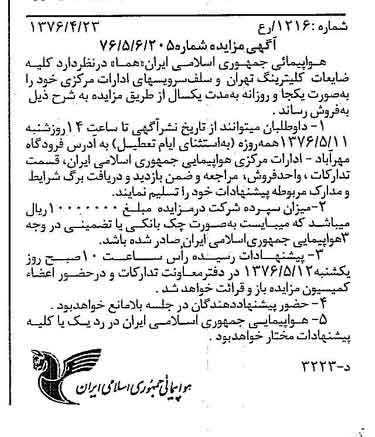 شماره: ۱۲۱۶/رع ۱۳۷۶/۴/۲۳
آگهی مزایده شماره ۷۶/۵/۶/۲۰۵
هواپیمائی جمهوری اسلامی ایران«هما» درنظردارد کلیه
ضایعات کلیترینگ تهران و سلف‌سرویسهای ادارات مرکزی خود را
به‌صورت یکجا و روزانه به‌مدت یکسال از طریق مزایده به شرح ذیل
به‌فروش رساند.
۱- داوطلبان میتوانند از تاریخ نشرآگهی تا ساعت ۱۴روزشنبه
۱۳۷۶/۵/۱۱همه‌روزه (به‌استثنای ایام تعطیل) به آدرس فرودگاه
مهرآباد - ادارات مرکزی هواپیمایی جمهوری اسلامی ایران، قسمت
تدارکات، واحدفروش، مراجعه و ضمن بازدید و دریافت برگ شرایط
و مدارک مربوطه پیشنهادات خود را تسلیم نمایند.
۲-میزان سپرده شرکت درمزایده مبلغ ۱۰۰۰۰۰۰۰ریال
میباشد که میبایست به‌صورت چک بانکی یا تضمینی در وجه
۳هواپیمایی جمهوری‌اسلامی ایران صادر شده باشد.
۳- پیشنهادات رسیده رأس ساعت ۱۰صبح روز
یکشنبه۱۳۷۶/۵/۱۲ در دفترمعاونت تدارکات و درحضور اعضاء
کمیسیون مزایده باز و قرائت خواهد شد.
۴- حضور پیشنهاددهندگان در جلسه بلامانع خواهدبود.
۵- هواپیمایی جمهوری اسلامی ایران در رد یک یا کلیه
پیشنهادات مختار خواهدبود.
د-۳۲۲۳
هواپیمائی جمهوری اسلامی ایران